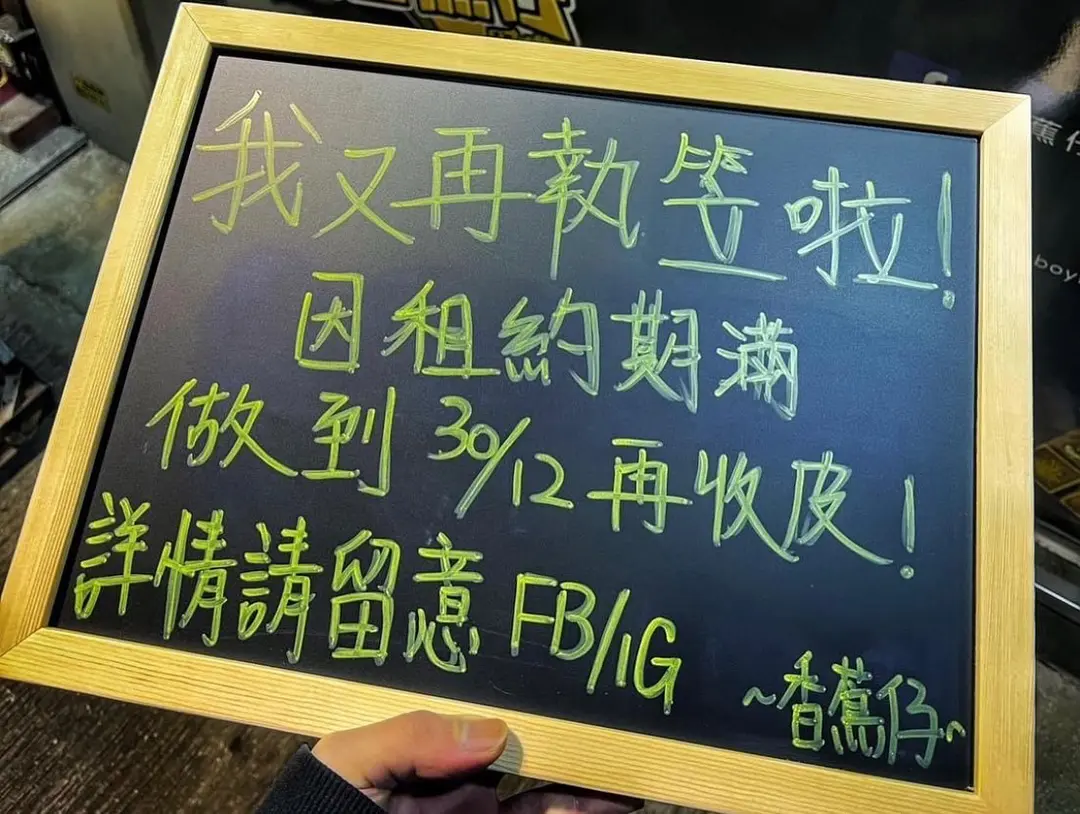 我又再執笠啦!
因租約期滿
做到30/12再收皮!
詳情請留意FB/IG
~香蕉仔~
蕉仔
boy